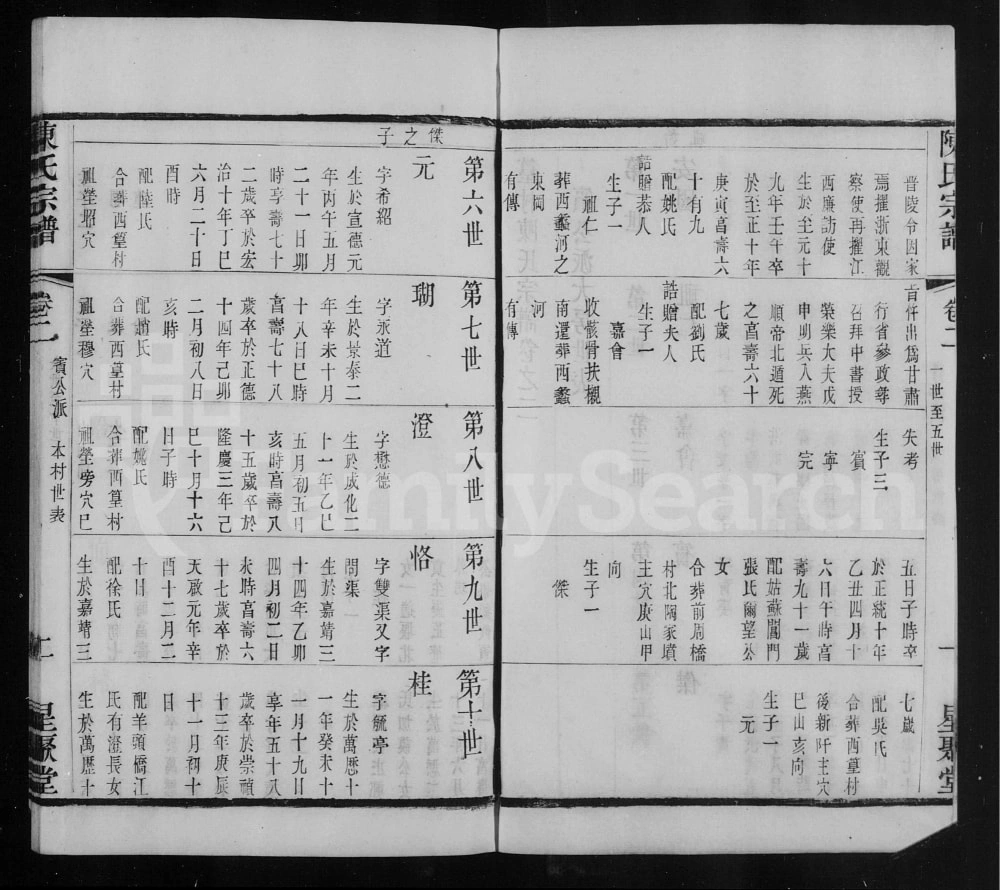 陳氏宗譜
卷二
一世至五世
一
星聚堂
晋陵令因家
焉擢浙東觀
察使再擢江
西廉訪使
生於至元十
九年壬午卒
於至正十年
庚寅享壽六
十有九
配姚氏
誥贈恭人
生子一
祖仁
葬西蠡河之
東岡
有傳
官仕出爲甘肅
行省參政尋
召拜中書授
榮樂大夫戊
申明兵入燕
順帝北遁死
之享壽六十
七歲
配劉氏
誥贈夫人
生子一
嘉會
收骸骨扶櫬
南還葬西蠡
河
有傳
失考
生子三
賓
寧
完
五日子時卒
於正統十年
乙丑四月十
六日午時享
壽九十一歲
配姑蘇閶門
張氏爾望公
女
合葬前周橋
村北陶家墳
主穴庚山甲
向
生子一
傑
七歲
配吳氏
合葬西墓村
後新阡主穴
巳山亥向
生子一
元
傑之子
第六世
元
字希紹
生於宣德元
年丙午五月
二十一日卯
時享壽七十
二歲卒於宏
治十年丁巳
六月二十日
酉時
配陸氏
合葬西墓村
祖塋昭穴
第七世
瑚
字永道
生於景泰二
年辛未十月
十八日巳時
享壽七十八
歲卒於正德
十四年己卯
二月初八日
亥時
配趙氏
合葬西墓村
祖塋穆穴
第八世
澄
字懋德
生於成化二
十一年乙巳
五月初五日
亥時享壽八
十五歲卒於
隆慶三年己
巳十月十六
日子時
配姚氏
合葬西墓村
祖塋旁穴巳
第九世
恪
字雙渠又字
問渠
生於嘉靖三
十四年乙卯
四月初二日
未時享壽六
十七歲卒於
天啟元年辛
酉十二月二
十日
配徐氏
生於嘉靖三
第十世
桂
字毓亭
生於萬歷十
一年癸未十
一月十九日
享年五十八
歲卒於崇禎
十三年庚辰
十一月初十
日
配羊頭橋江
氏有澄長女
生於萬歷十
陳氏宗譜
卷二
賓公派 本村世表
二
星聚堂
FamilySearch